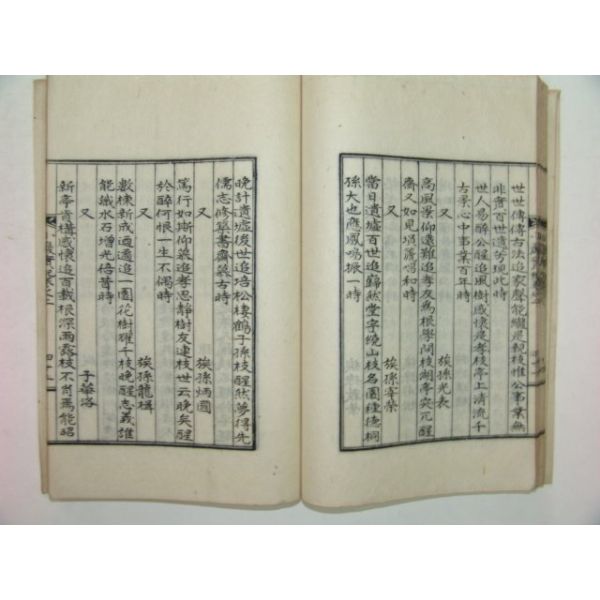 世世傳傳古法追家聲能繼是孫枝惟公事業無
非奢百世遺芳現此時
世人易醉公醒追風樹感懷是孝枝亭上清流千
古景心中事業百年時
又 族孫光表
高風景仰遠難追孝友為根學問枝湖亭突兀醒
齋又如見塤篪唱和時
又 族孫宰榮
當日遺墟百世追巋然堂宇繞山枝名園種德桐
孫大也應鳳鳴振一時
晩計遺墟後世追培松棲鶴子孫枝醒然夢得先
儒志修葺書齋裝古時
又 族孫炳圖
篤行如斯仰裝追孝忠靜樹友連枝世云晩矣醒
於醉何恨一生不偶時
又 族孫龍楫
數棟新成適適追一園花樹耀千枝晩醒志義雄
能識水石增光倍昔時
又 子華洛
新亭肯構感懷追百栽根深雨露枝不肖焉能昭